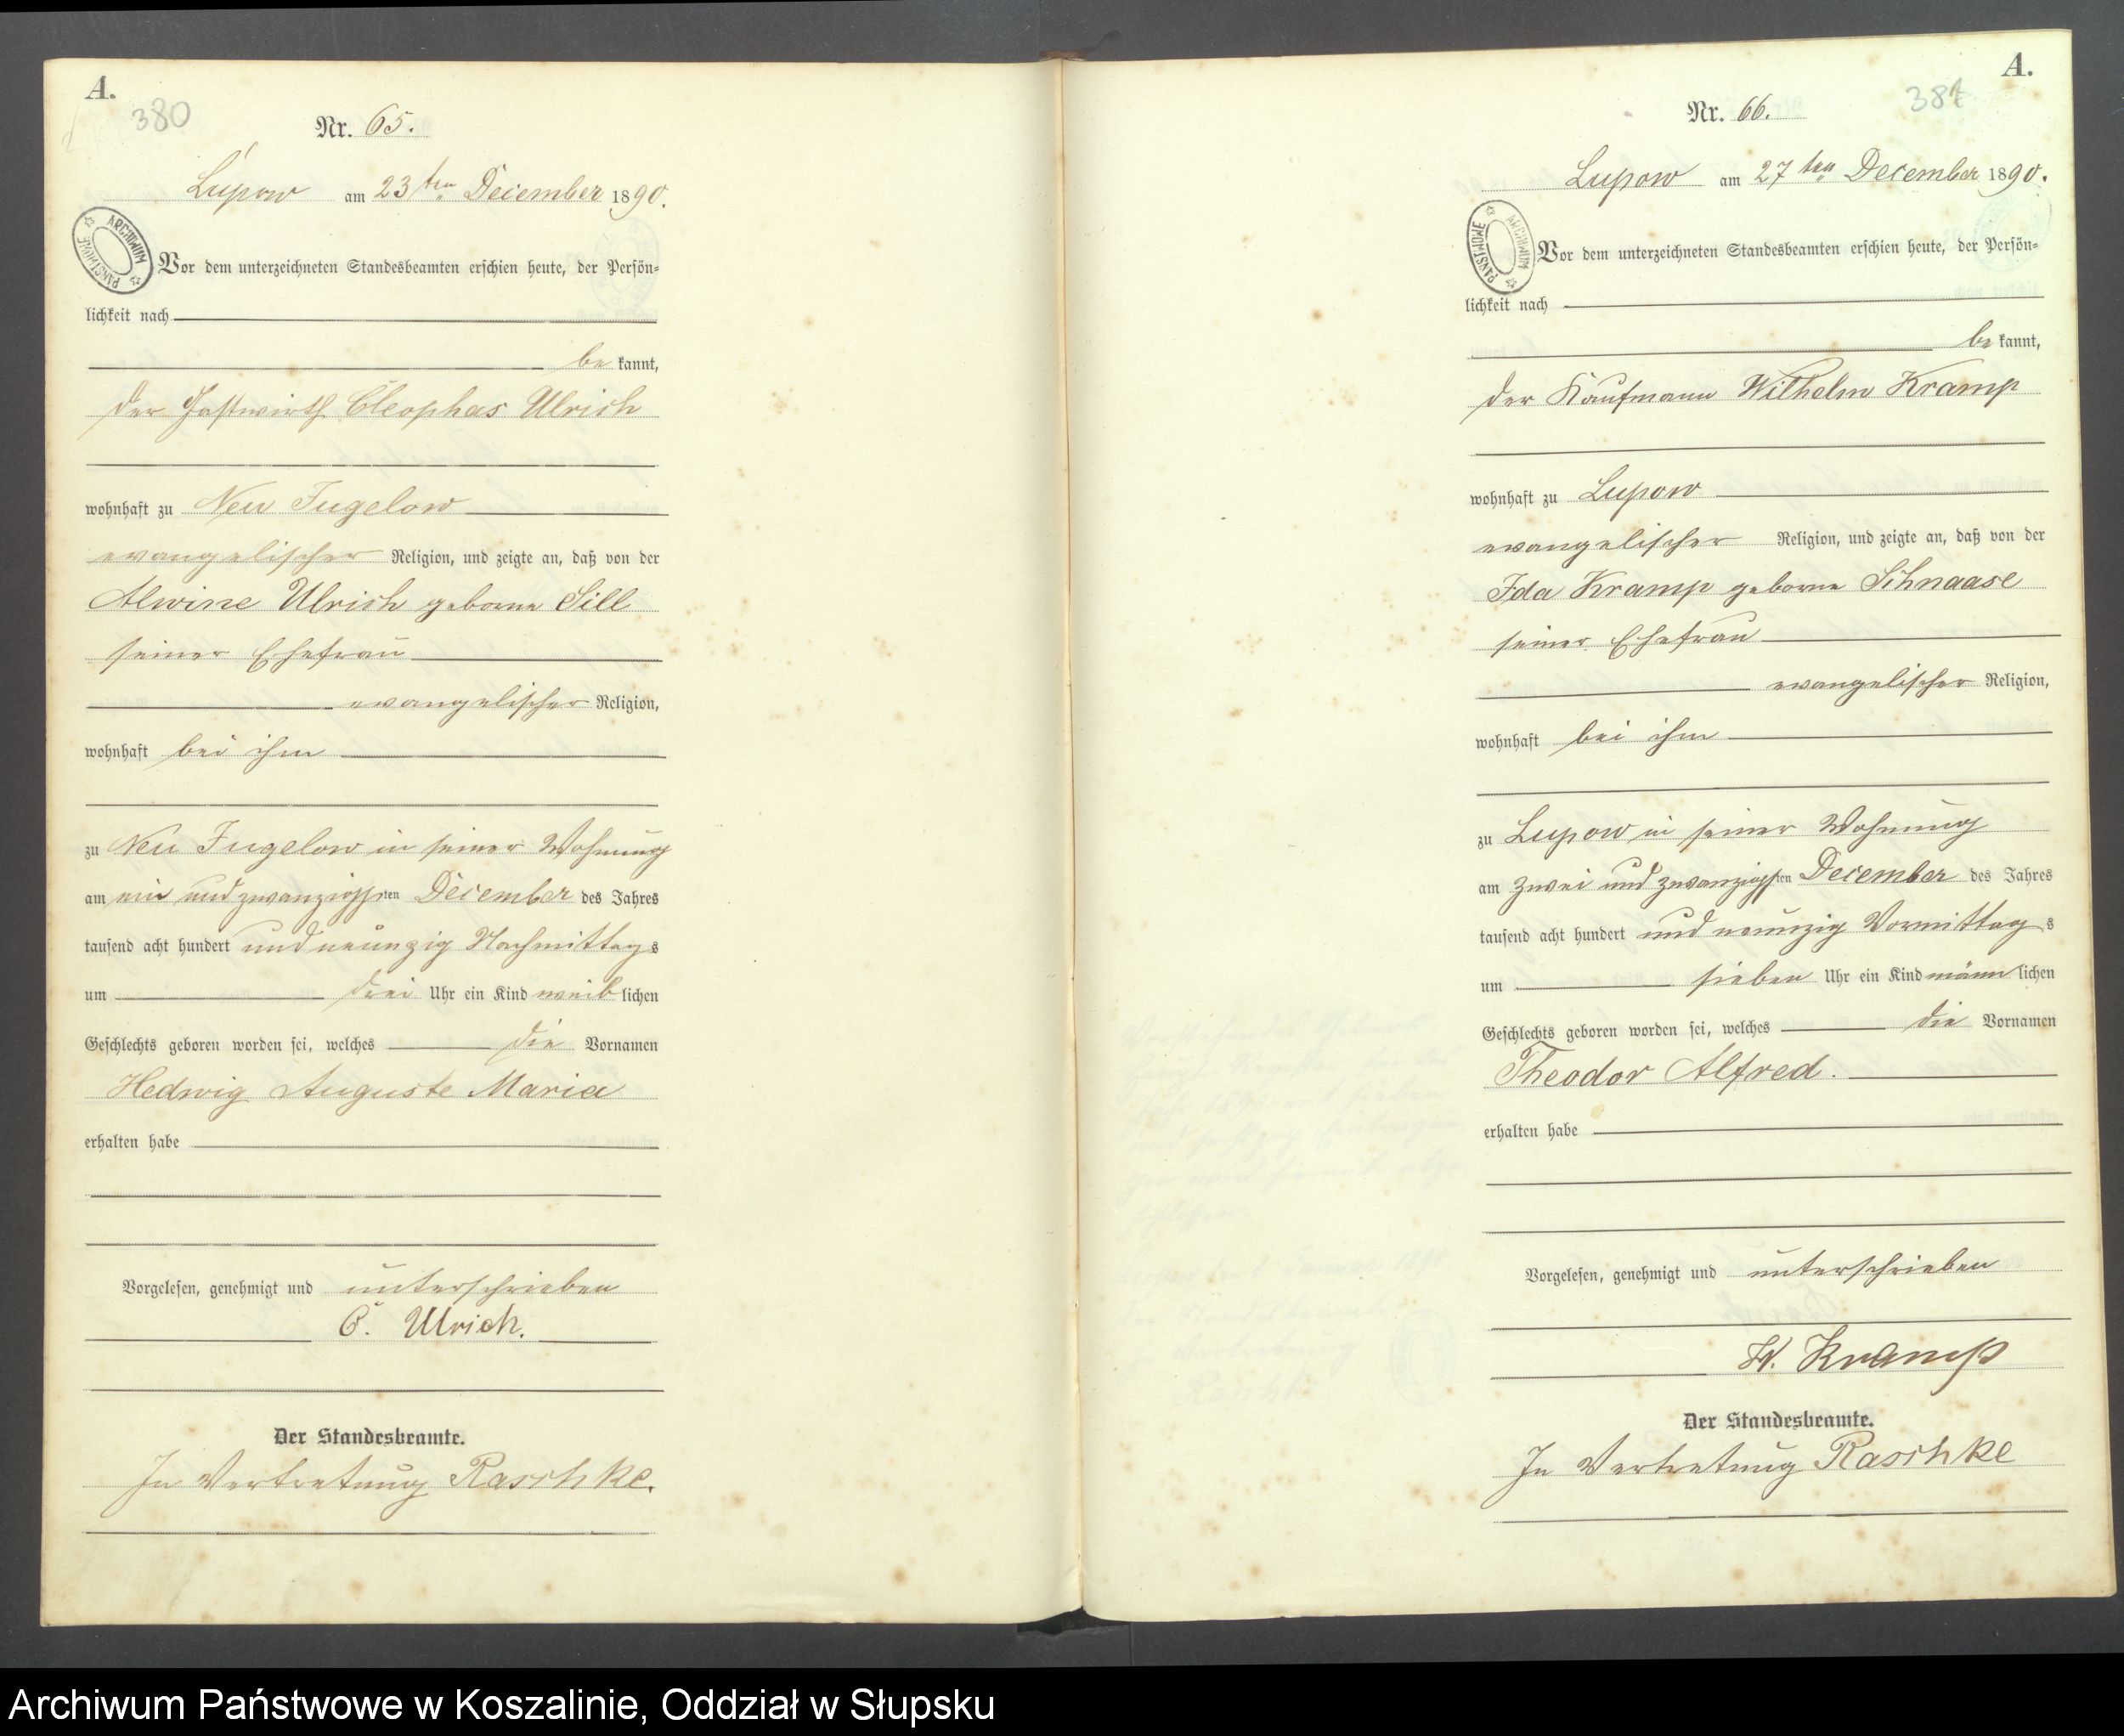 A.
380
Nr. 65.
Lupow am 23ten December 1890.
ARCHIWUM PAŃSTWOWE
Vor dem unterzeichneten Standesbeamten erschien heute, der Persön-
lichkeit nach
be kannt,
der Gastwirth Cleophas Ulrich
wohnhaft zu Neu Jugelow
evangelischer Religion, und zeigte an, daß von der
Alwine Ulrich geborne Sill
seiner Ehefrau
evangelischer Religion,
wohnhaft bei ihm
zu Neu Jugelow in seiner Wohnung
am ein und zwanzigsten December des Jahres
tausend acht hundert und neunzig Nachmittags
um drei Uhr ein Kind weiblichen
Geschlechts geboren worden sei, welches die Vornamen
Hedwig Auguste Maria
erhalten habe
Vorgelesen, genehmigt und unterschrieben
C. Ulrich.
Der Standesbeamte.
In Vertretung Raschke.
A.
Nr. 66.
Lupow am 27ten December 1890.
ARCHIWUM PAŃSTWOWE
Vor dem unterzeichneten Standesbeamten erschien heute, der Persön-
lichkeit nach
be kannt,
der Kaufmann Wilhelm Kramp
wohnhaft zu Lupow
evangelischer Religion, und zeigte an, daß von der
Ida Kramp geborne Schnaase
seiner Ehefrau
evangelischer Religion,
wohnhaft bei ihm
zu Lupow in seiner Wohnung
am zwei und zwanzigsten December des Jahres
tausend acht hundert und neunzig Vormittags
um sieben Uhr ein Kind männlichen
Geschlechts geboren worden sei, welches die Vornamen
Theodor Alfred.
erhalten habe
Vorgelesen, genehmigt und unterschrieben
W. Kramp
Der Standesbeamte.
In Vertretung Raschke
Archiwum Państwowe w Koszalinie, Oddział w Słupsku